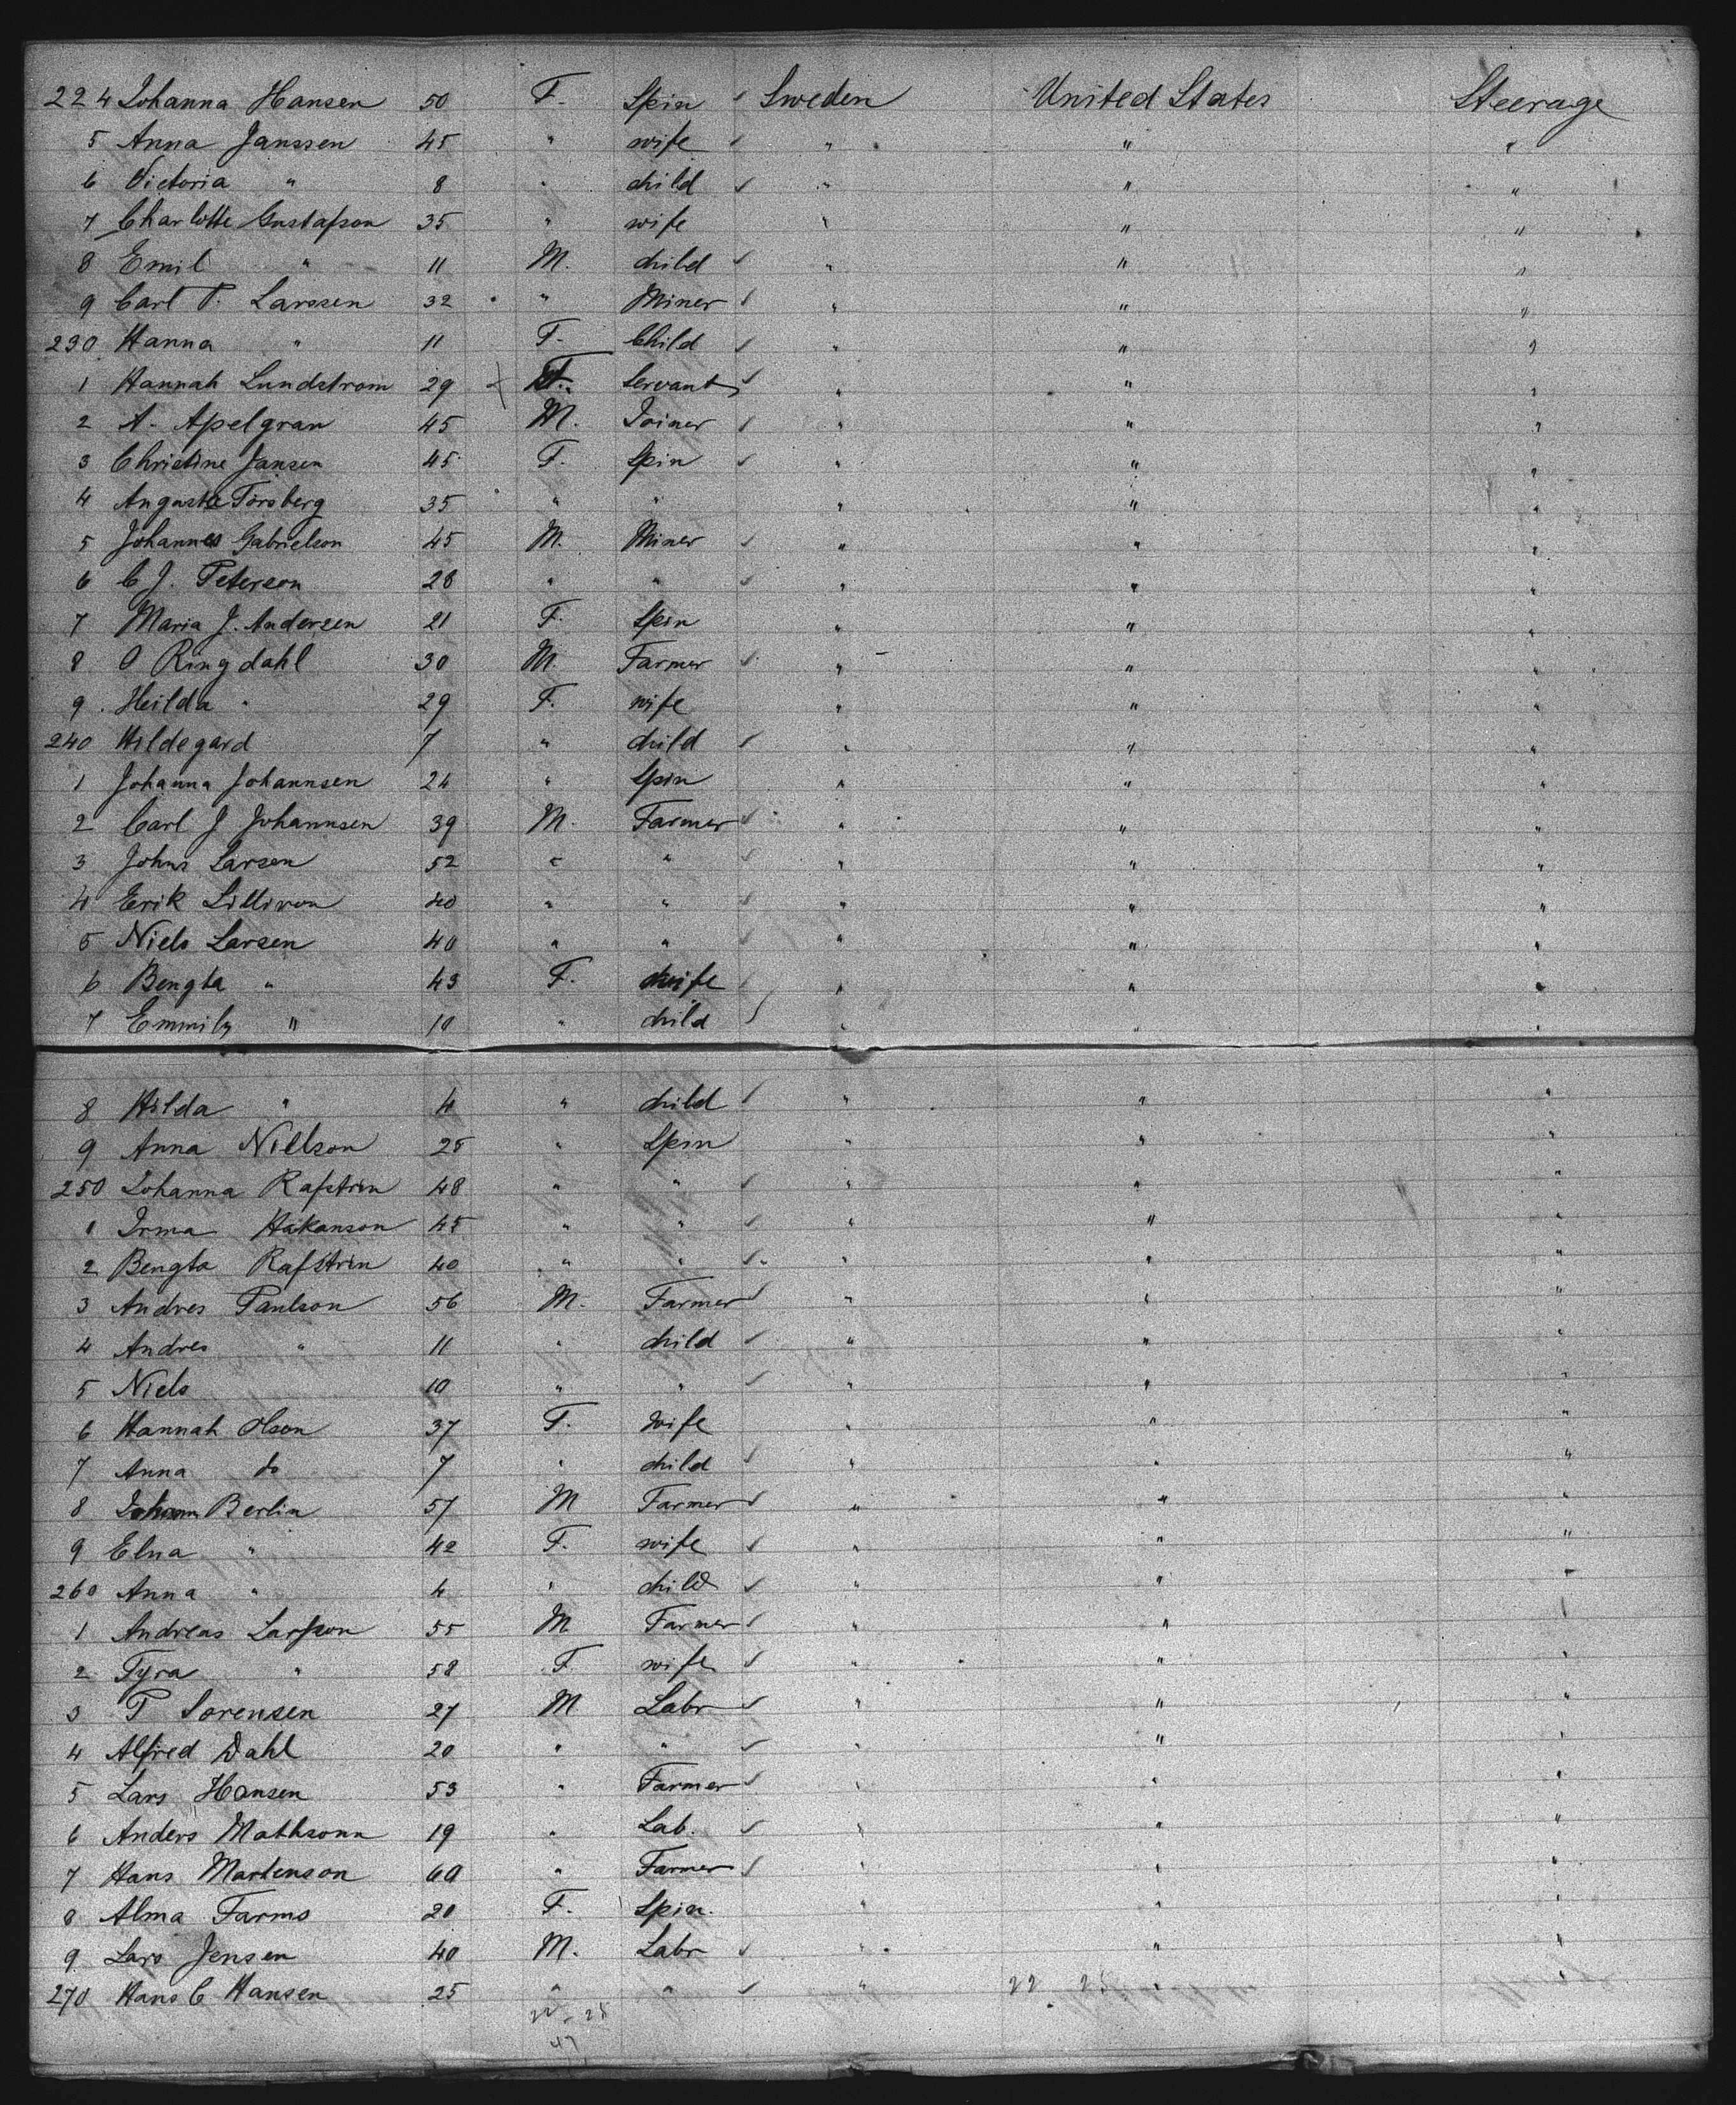 224 Johanna Hansen 50 F. Spin ✓ Sweden United States Steerage
5 Anna Janssen 45 " wife ✓ " " "
6 Victoria " 8 " child ✓ " " "
7 Charlotte Gustafson 35 " wife " " "
8 Emil " 11 M. child ✓ " " "
9 Carl P. Larssen 32 " Miner ✓ " " "
230 Hanna " 11 F. Child ✓ " " "
1 Hannah Lundstrom 29 F. Servant ✓ " " "
2 A. Apelgran 45 M. Joiner ✓ " " "
3 Christine Jansen 45 F. Spin ✓ " " "
4 Auguste Forsberg 35 " " " " "
5 Johannes Gabrielson 45 M. Miner ✓ " " "
6 C J. Peterson 28 " " ✓ " " "
7 Maria J. Andersen 21 F. Spin " " "
8 O Ringdahl 30 M. Farmer ✓ " " "
9 Heilda " 29 F. wife " " "
240 Hildegard 7 " child ✓ " " "
1 Johanna Johannsen 24 " Spin " " "
2 Carl J Johannsen 39 M. Farmer ✓ " " "
3 Johns Larsen 52 " " ✓ " " "
4 Erik 40 " " ✓ " " "
5 Niels Larsen 40 " " ✓ " " "
6 Bengta " 43 F. wife ✓ " " "
7 Emmily " 10 " child " " "
8 Hilda " 4 " child ✓ " " "
9 Anna Nillson 25 " Spin " " "
250 Johanna Rafstrin 48 " " ✓ " " "
1 Irma Håkanson 45 " " ✓ " " "
2 Bengta Rafstrin 40 " " ✓ " " "
3 Andres Paulson 56 M. Farmer ✓ " " "
4 Andres " 11 " child ✓ " " "
5 Niels 10 " " ✓ " " "
6 Hannah Olson 37 F. Wife " " "
7 Anna do 7 " child ✓ " " "
8 Johann Berlin 57 M Farmer ✓ " " "
9 Elna " 42 F. wife ✓ " " "
260 Anna " 4 " child ✓ " " "
1 Andreas Larsson 55 M Farmer ✓ " " "
2 Tyra " 58 F wife ✓ " " "
3 P Sorensen 27 M Labr ✓ " " "
4 Alfred Dahl 20 " " ✓ " " "
5 Lars Hansen 53 " Farmer ✓ " " "
6 Anders Mathsonn 19 " Lab. ✓ " " "
7 Hans Martenson 60 " Farmer ✓ " " "
8 Alma Farms 20 F. Spin. " " "
9 Lars Jensen 40 M. Labr ✓ " " "
270 Hans C Hansen 25 " " ✓ " 22 25 " "
22 25
47